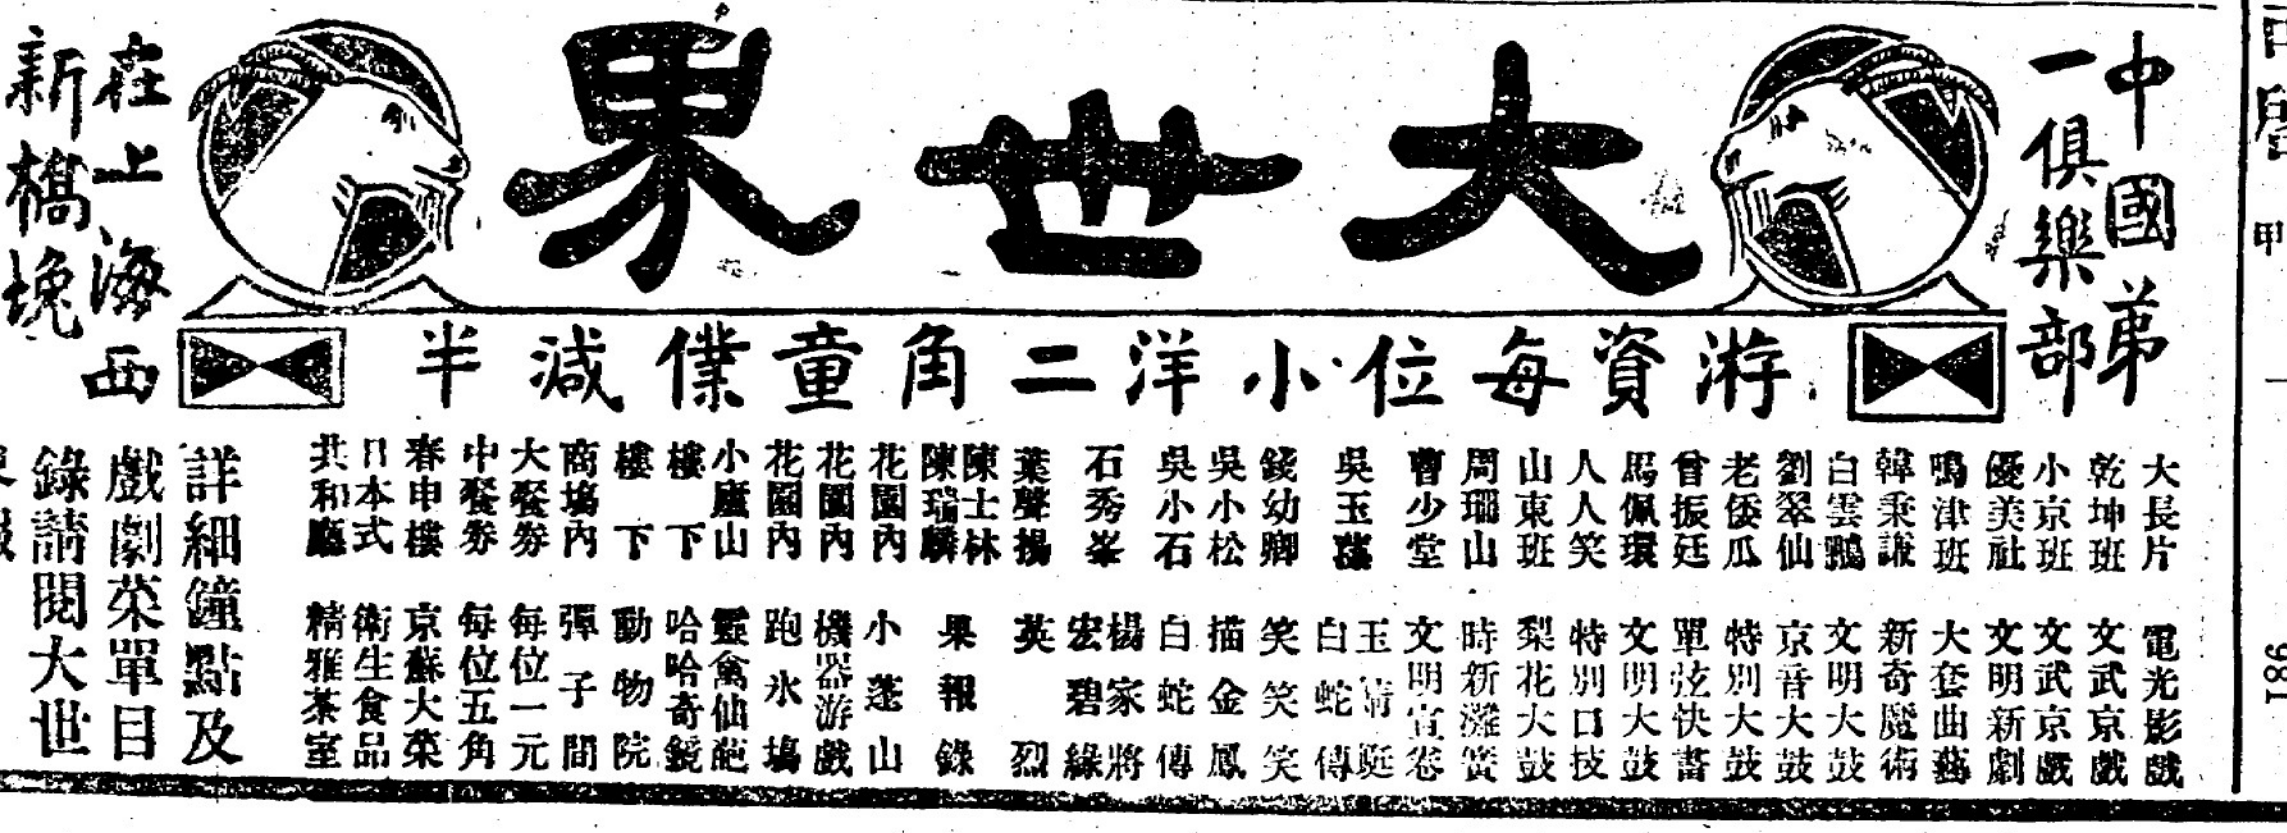 中國第
一俱樂部
大世界
在上海西
新橋堍
游資每位小洋二角童僕減半
大長片 電光影戲
乾坤班 文武京戲
小京班 文武京戲
優美社 文明新劇
鳴津班 大套曲藝
韓秉謙 新奇魔術
白雲鵬 文明大鼓
劉翠仙 京音大鼓
老倭瓜 特別大鼓
曾振廷 單弦快書
馬佩環 文明大鼓
人人笑 特別口技
山東班 梨花大鼓
周珊山 時新灘簧
曹少堂 文明宣卷
吳玉蓀 玉蜻蜓 白蛇傳
錢幼卿 笑笑笑
吳小松 描金鳳
吳小石 白蛇傳
石秀峯 楊家將 宏碧緣
葉聲揚 英烈
陳士林
陳瑞麟 果報錄
花園內 小蓬山
花園內 機器游戲
花園內 跑氷塲
小廬山 靈禽仙葩
樓下 哈哈奇鏡
樓下 動物院
商塲內 彈子間
大餐券 每位一元
中餐券 每位五角
春申樓 京蘇大菜
日本式 衛生食品
共和廳 精雅茶室
詳細鐘點及
戲劇菜單目
錄請閱大世
甲
981